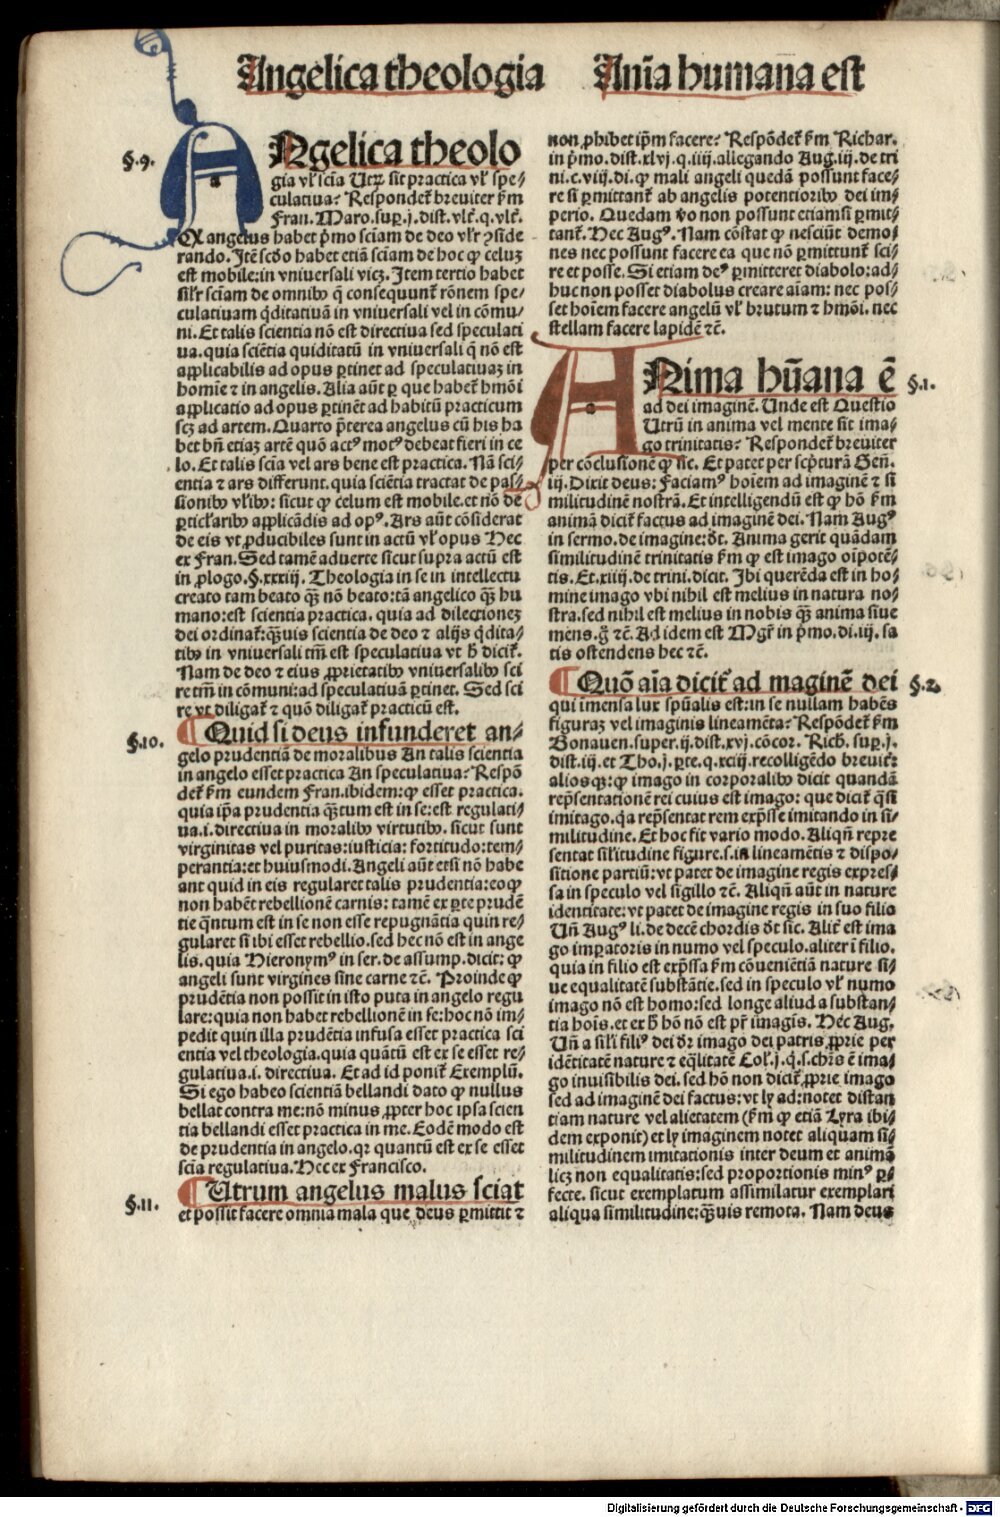 Angelica theologia Aīa humana est
§.9.
ANgelica theolo
gia vl' scīa Utrū sit practica vl' spe-
culatiua? Respondet̄ breuiter ẜm
Fran. Maro. sup. j. dist. vlt̄. q. vlt̄.
Q angelus habet p̄mo sciam de deo vl'r ɔside
rando. Itē scd̄o habet etiā sciam de hoc ꝙ celuꝫ
est mobile: in vniuersali vicꝫ. Item tertio habet
sil'r sciam de omnibꝰ q̄ consequunt̄ rōnem spe-
culatiuam q̄ditatiuā in vniuersali vel in cōmu-
ni. Et talis scientia nō est directiua sed speculati
ua. quia sciētia quiditatū in vniuersali q̄ nō est
applicabilis ad opus ꝑtinet ad speculatiuaꝫ in
homīe ⁊ in angelis. Alia aūt ꝑ que habet̄ hmōi
applicatio ad opus ꝑtinēt ad habitū practicum
scꝫ ad artem. Quarto p̄terea angelus cū his ha
bet bn̄ etiaꝫ artē quō actꝰ motꝰ debeat fieri in ce
lo. Et talis scīa vel ars bene est practica. Nā sci-
entia ⁊ ars differunt. quia sciētia tractat de pas-
sionibꝰ vl'ibꝰ: sicut ꝙ celum est mobile. et nō de
ꝑticl'aribꝰ applicādis ad opꝰ. Ars aūt cōsiderat
de eis vt ꝓducibiles sunt in actū vl' opus Hec
ex Fran. Sed tamē aduerte sicut supra actū est
in ꝓlogo. §. xxxiij. Theologia in se in intellectu
creato tam beato qꝫ nō beato: tā angelico qꝫ hu
mano: est scientia practica. quia ad dilectioneꝫ
dei ordinat̄: qꝫuis scientia de deo ⁊ alijs q̄dita-
tibꝰ in vniuersali tm̄ est speculatiua vt h̄ dicit̄.
Nam de deo ⁊ eius ꝓprietatibꝰ vniuersalibꝰ sci
re tm̄ in cōmuni: ad speculatiuā ꝑtinet. Sed sci
re vt diligat̄ ⁊ quō diligat̄ practicū est.
§.10.
¶ Quid si deus infunderet an-
gelo prudentiā de moralibus An talis scientia
in angelo esset practica An speculatiua? Respō
det̄ ẜm eundem Fran. ibidem: ꝙ esset practica.
quia ip̄a prudentia qꝫtum est in se: est regulati-
ua .i. directiua in moralibꝰ virtutibꝰ. sicut sunt
virginitas vel puritas: iusticia: fortitudo: tem-
perantia: et huiusmodi. Angeli aūt etsi nō habe
ant quid in eis regularet talis prudentia: eo ꝙ
non habēt rebellionē carnis: tamē ex ꝑte prudē
tie qꝫntum est in se non esse repugnātia quin re-
gularet si ibi esset rebellio. sed hec nō est in ange
lis. quia Hieronymꝰ in ser. de assump. dicit: ꝙ
angeli sunt virgines sine carne ⁊c̄. Proinde ꝙ
prudētia non possit in isto puta in angelo regu
lare: quia non habet rebellionē in se: hoc nō im-
pedit quin illa prudētia infusa esset practica sci
entia vel theologia. quia quātū est ex se esset re-
gulatiua .i. directiua. Et ad id ponit̄ Exemplū.
Si ego habeo scientiā bellandi dato ꝙ nullus
bellat contra me: nō minus ꝓpter hoc ipsa scien
tia bellandi esset practica in me. Eodē modo est
de prudentia in angelo. qꝛ quantū est ex se esset
scīa regulatiua. Hec ex Francisco.
§.11.
¶ Utrum angelus malus sciat
et possit facere omnia mala que deus ꝑmittit ⁊
non ꝓhibet ip̄m facere? Respōdet̄ ẜm Richar.
in p̄mo. dist. xlvj. q. iiij. allegando Aug. iij. de tri
ni. c. viij. di. ꝙ mali angeli quedā possunt face-
re si ꝑmittant̄ ab angelis potentioribꝰ dei im-
perio. Quedam vo non possunt etiamsi ꝑmit-
tant̄. Hec Augꝰ. Nam cōstat ꝙ nesciūt demo-
nes nec possunt facere ea que nō ꝑmittunt̄ sci-
re et posse. Si etiam deꝰ ꝑmitteret diabolo: ad-
huc non posset diabolus creare aīam: nec pos-
set hoīem facere angelū vl' brutum ⁊ hmōi. nec
stellam facere lapidē ⁊c̄.
ANima hūana ē
§.1.
ad dei imaginē. Unde est Questio
Utrū in anima vel mente sit ima-
go trinitatis? Respondet̄ breuiter
per cōclusionē ꝙ sic. Et patet per scp̄turā Gen̄.
iij. Dixit deus: Faciamꝰ hoīem ad imaginē ⁊ si
militudinē nostrā. Et intelligendū est ꝙ hō ẜm
animā dicit̄ factus ad imaginē dei. Nam Augꝰ
in sermo. de imagine: d̄t. Anima gerit quādam
similitudinē trinitatis ẜm ꝙ est imago oīpotē-
tis. Et. xiiij. de trini. dicit. Ibi querēda est in ho-
mine imago vbi nihil est melius in natura no-
stra. sed nihil est melius in nobis qꝫ anima siue
mens. g̊ ⁊c̄. Ad idem est Mgr̄ in p̄mo. di. iij. sa
tis ostendens hec ⁊c̄.
¶ Quō aīa dicit̄ ad maginē dei
§.2.
qui imensa lux spūalis est: in se nullam habēs
figuraꝫ vel imaginis lineamēta? Respōdet̄ ẜm
Bonauen. super. ij. dist. xvj. cōcor. Rich. sup. j.
dist. iij. et Tho. j. ꝑte. q. xciij. recolligēdo breuit̄:
alios qꝫ: ꝙ imago in corporalibꝰ dicit quandā
rep̄sentationē rei cuius est imago: que dicit̄ qꝫsi
imitago. qꝛ rep̄sentat rem exp̄sse imitando in si-
militudine. Et hoc fit vario modo. Aliqn̄ repre
sentat sil'itudine figure. s. in lineamētis ⁊ dispo-
sitione partiū: vt patet de imagine regis expres-
sa in speculo vel sigillo ⁊c̄. Aliqn̄ aūt in nature
identitate: vt patet de imagine regis in suo filio
Un̄ Augꝰ li. de decē chordis d̄t sic. Alit̄ est ima
go imꝑatoris in numo vel speculo. aliter ī filio.
quia in filio est exp̄ssa ẜm cōueniētiā nature si-
ue equalitatē substātie. sed in speculo vl' numo
imago nō est homo: sed longe aliud a substan-
tia hoīs. et ex h̄ hō nō est pr̄ imagīs. Hec Aug.
Un̄ a sil'i filiꝰ dei d̄r imago dei patris ꝓprie per
idētitatē nature ⁊ eq̄litatē Col'. j. q. s. chr̄s ē ima-
go inuisibilis dei. sed hō non dicit̄ ꝓprie imago
sed ad imaginē dei factus: vt ly ad: notet distan
tiam nature vel alietatem (ẜm ꝙ etiā Lyra ibi-
dem exponit) et ly imaginem notet aliquam si-
militudinem imitationis inter deum et animā
licꝫ non equalitatis: sed proportionis minꝰ ꝑ-
fecte. sicut exemplatum assimilatur exemplari
aliqua similitudine: qꝫuis remota. Nam deus
Digitalisierung gefördert durch die Deutsche Forschungsgemeinschaft - DFG